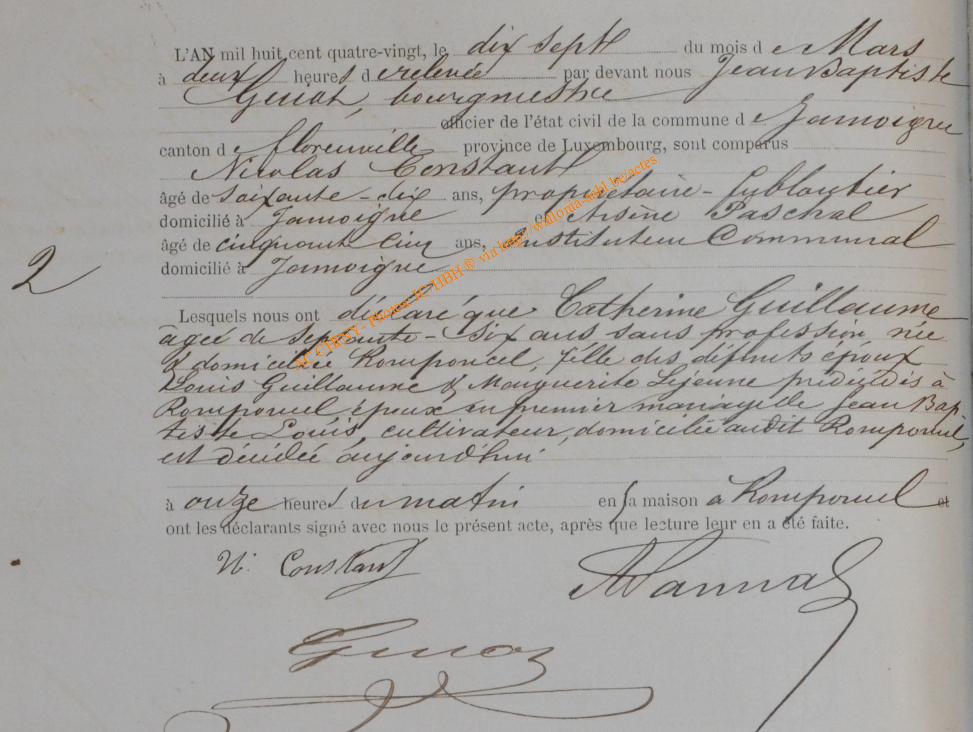 L'AN mil huit cent quatre-vingt, le dix sept du mois de Mars
à deux heures d relevée par devant nous Jean Baptiste
bourgmestre
officier de l'état civil de la commune de Jamoigne
canton de Florenville province de Luxembourg, sont comparus
Nicolas Constant
âgé de soixante-dix ans, propriétaire-
domicilié à Jamoigne et Arsène Paschal
âgé de cinquante cinq ans, Instituteur Communal
domicilié à Jamoigne
2
Lesquels nous ont déclaré que Catherine Guillaume
âgée de septante-six ans sans profession, née
& domiciliée Romponcel, fille des défunts époux
Louis Guillaume & Marguerite Lejeune prédécédés à
Romponcel, épouse en premier mariage de Jean Bap-
tiste Louis, cultivateur, domicilié audit Romponcel,
est décédée aujourd'hui
à onze heures du matin en sa maison à Romponcel et
ont les déclarants signé avec nous le présent acte, après que lecture leur en a été faite.
N. Constant